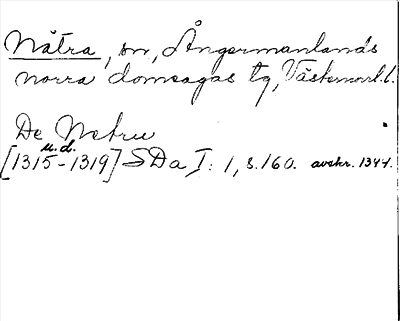 Nätra, sn, Ångermanlands
norra domsagas tg, Västernorrl. l.
De Netru
u. d.
[1315-1319] SDa I: 1, s. 160. avskr. 1344.